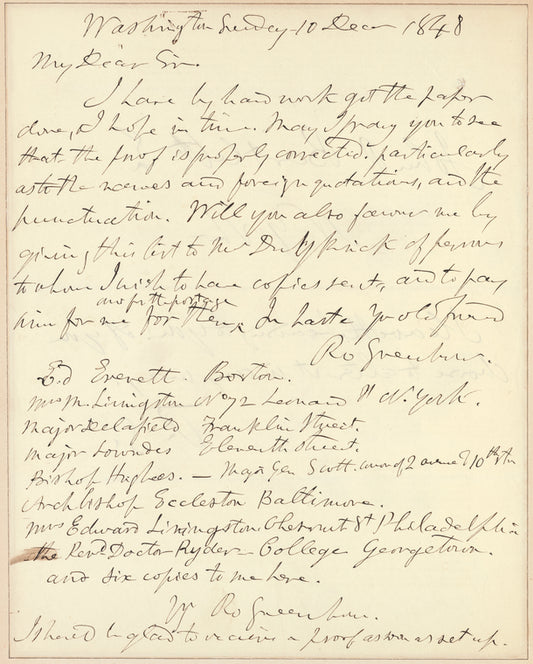 Washington Sunday 10 Decr 1848
My Dear Sir.
I have by hard work got the paper
done, & I hope in time. May I pray you to see
that the proof is properly corrected, particularly
as to the names and foreign quotations, and the
punctuation. Will you also favour me by
giving this list to Mr Duyckinck of persons
to whom I wish to have copies sent, and to pay
and for the postage
him for me for them, In haste Yr old friend
Ro Greenhow.
Ed Everett. Boston.
Mrs M. Livingston No 72 Leonard St N. York.
Major Delafield Franklin Street.
Major Lowndes Eleventh street.
Bishop Hughes. — Major Gen Scott. corner of 2 avenue & 10th str
Archbishop Eccleston Baltimore.
Mrs Edward Livingston Chesnut St Philadelphia
the Revd Doctor Ryder — College Georgetown.
and six copies to me here.
Yr Ro Greenhow.
I should be glad to receive a proof as soon as set up.